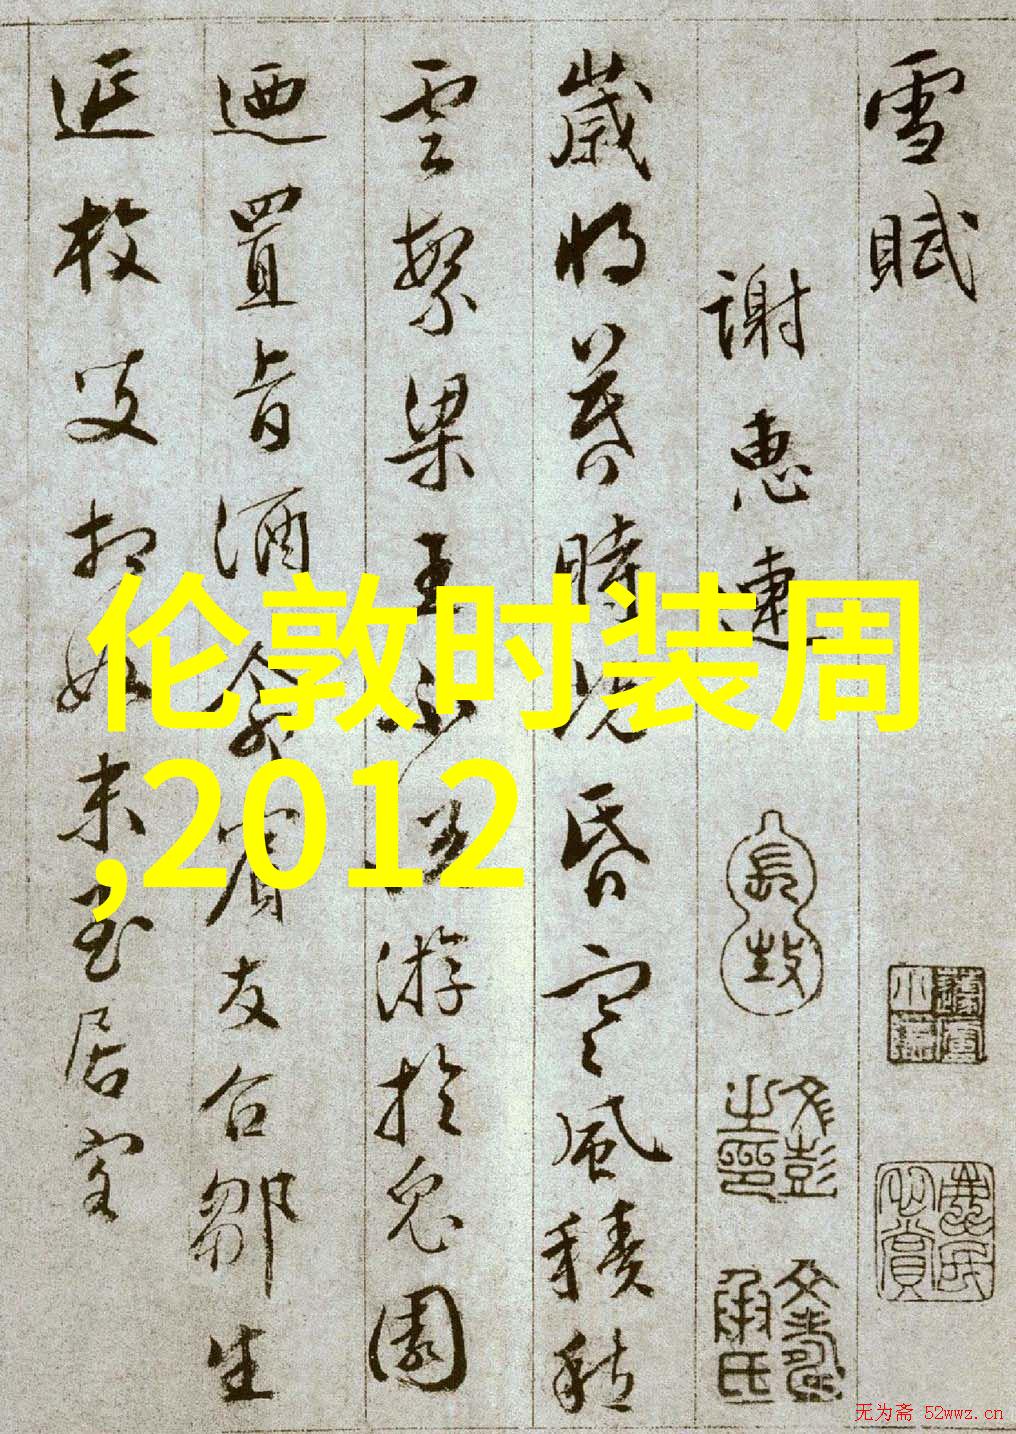 雪賦
謝惠連
歲将暮時既昏寒風積愁
雲繁梁王不悦游於兔園
迺置旨酒命賓友召鄒生
延枚叟相如末至居客
伦敦时装周
,2012
文彭之印
无为斋 52wwz.cn